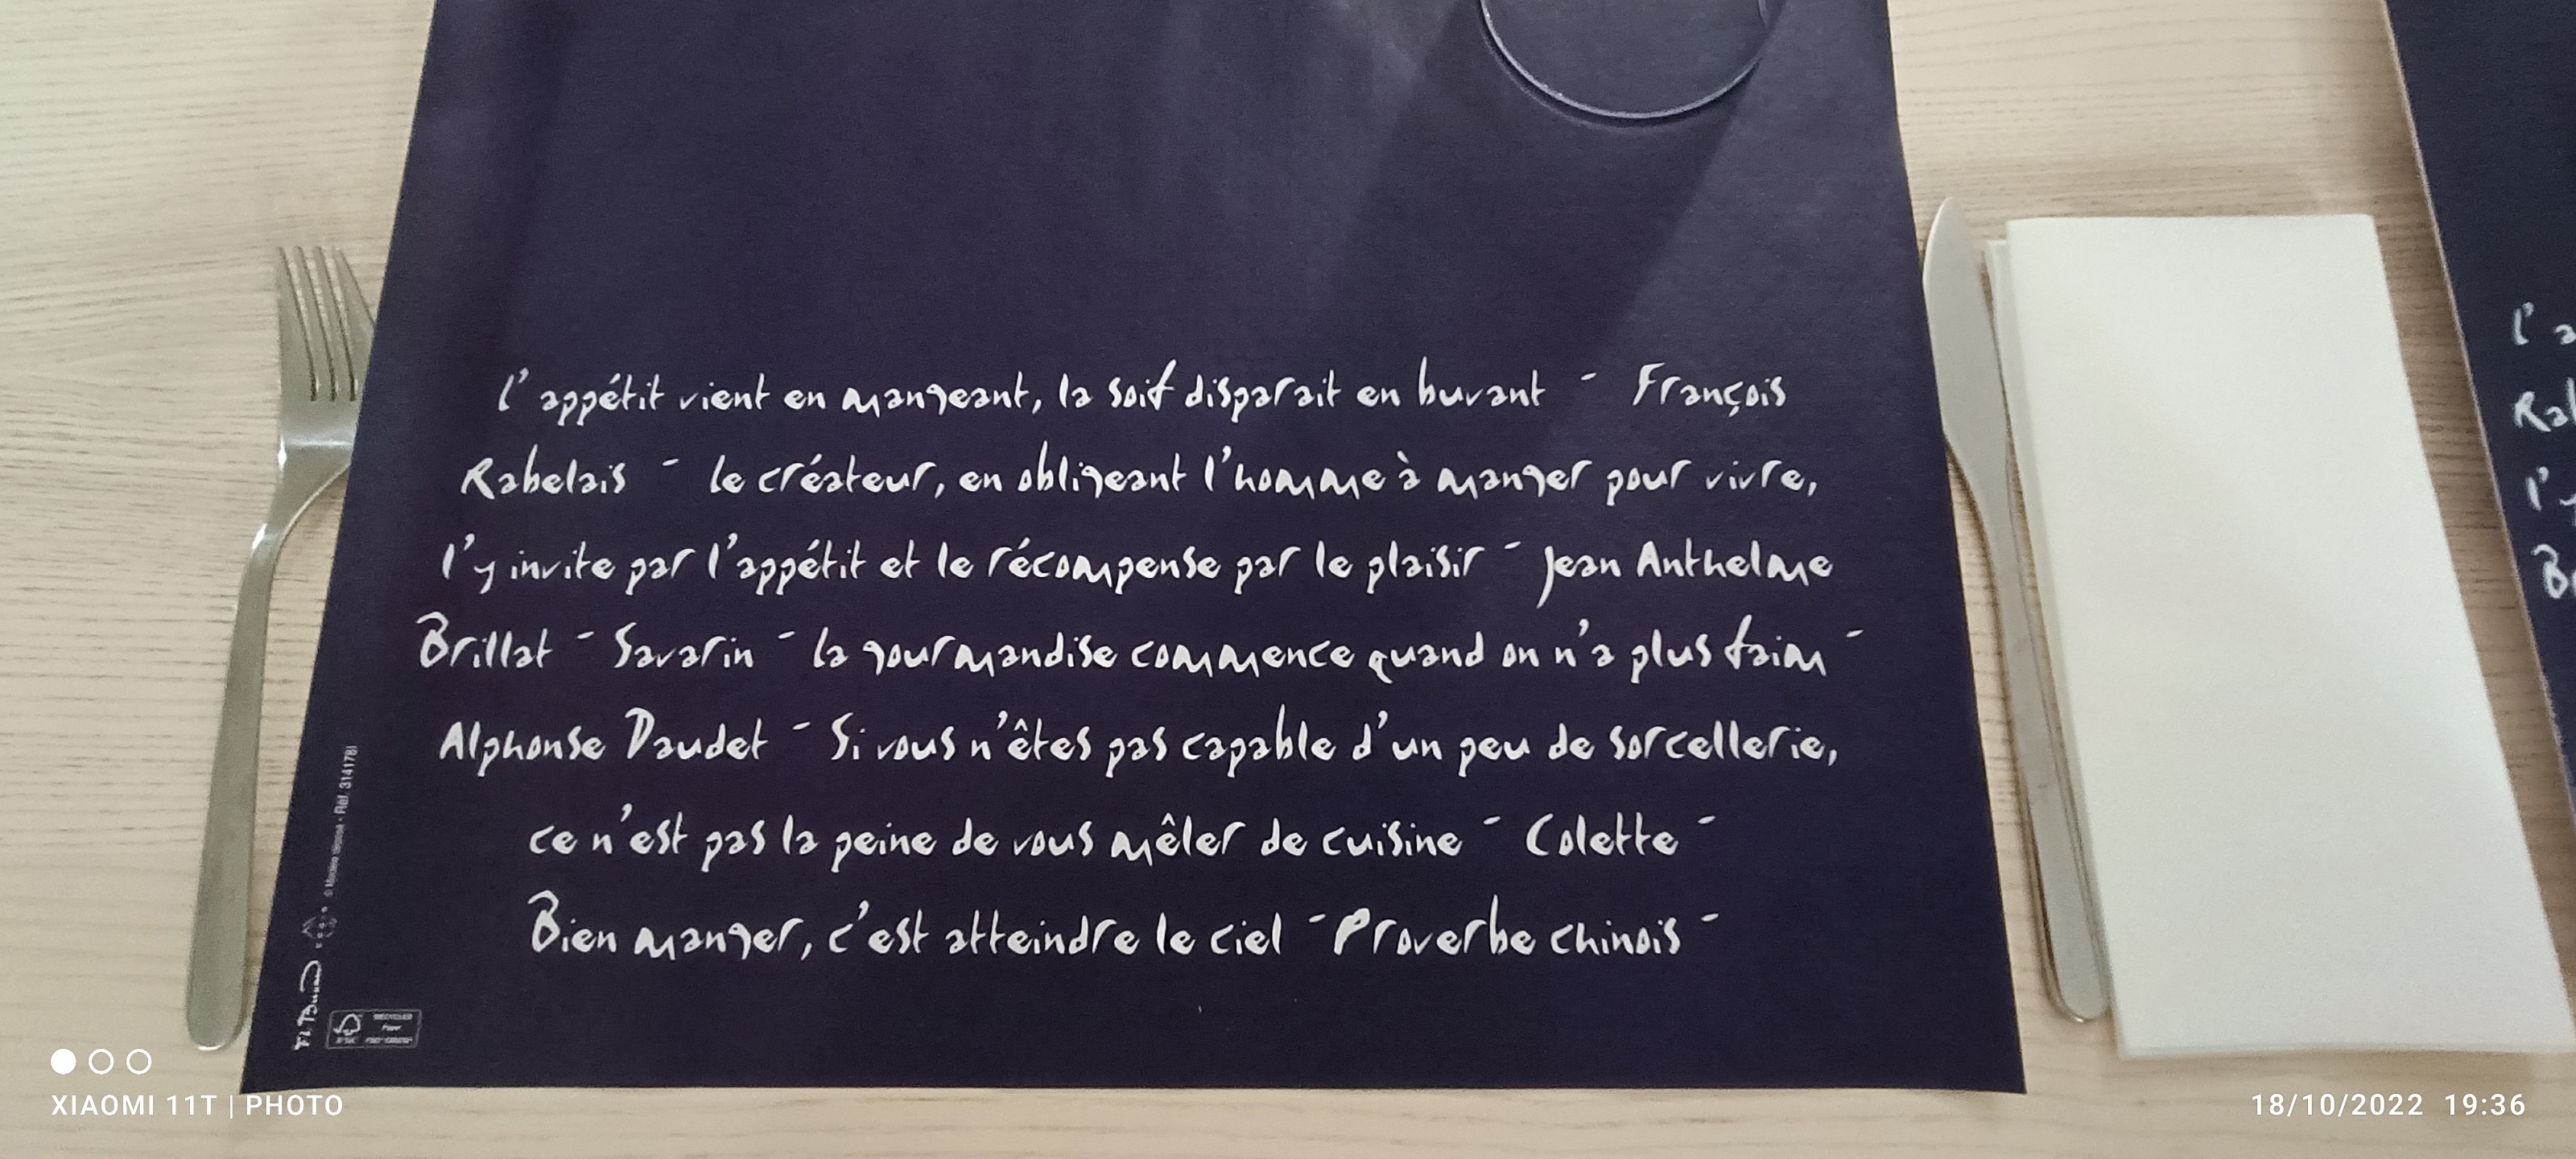 l'appétit vient en mangeant, la soif disparait en buvant - François
Rabelais - le créateur, en obligeant l'homme à manger pour vivre,
l'y invite par l'appétit et le récompense par le plaisir - Jean Anthelme
Brillat - Savarin - la gourmandise commence quand on n'a plus faim -
Alphonse Daudet - Si vous n'êtes pas capable d'un peu de sorcellerie,
ce n'est pas la peine de vous mêler de cuisine - Colette -
Bien manger, c'est atteindre le ciel - Proverbe chinois -
© Modèle déposé - Réf.
FSC
RECYCLED
Paper
l'a
Ra
l'y
Br
XIAOMI 11T | PHOTO
18/10/2022 19:36